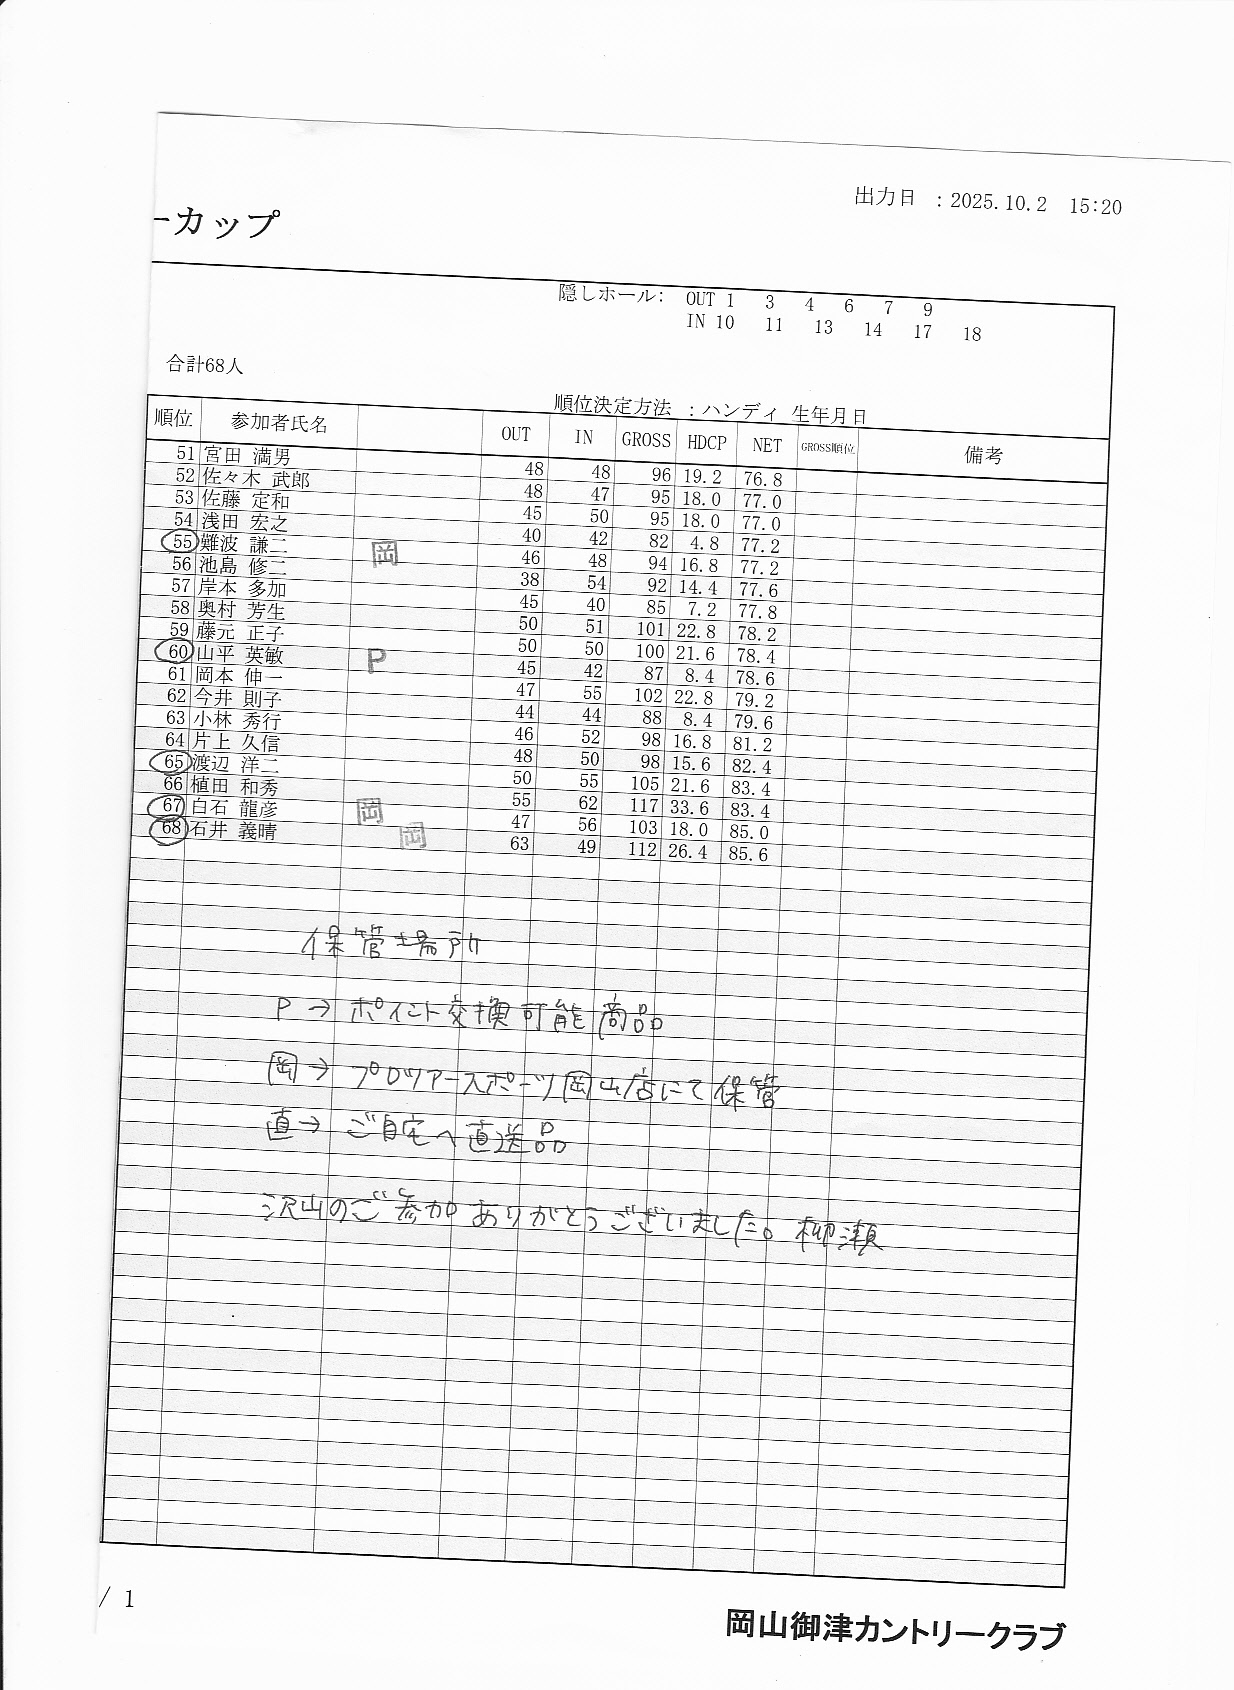 出力日 : 2025.10.2 15:20
ーカップ
隠しホール: OUT 1 3 4 6 7 9
IN 10 11 13 14 17 18
合計68人
順位決定方法 : ハンディ 生年月日
順位 参加者氏名 OUT IN GROSS HDCP NET GROSS順位 備考
51 宮田 満男 48 48 96 19.2 76.8
52 佐々木 武郎 48 47 95 18.0 77.0
53 佐藤 定和 45 50 95 18.0 77.0
54 浅田 宏之 40 42 82 4.8 77.2
55 難波 謙二 岡 46 48 94 16.8 77.2
56 池島 修二 38 54 92 14.4 77.6
57 岸本 多加 45 40 85 7.2 77.8
58 奥村 芳生 50 51 101 22.8 78.2
59 藤元 正子 50 50 100 21.6 78.4
60 山平 英敏 P 45 42 87 8.4 78.6
61 岡本 伸一 47 55 102 22.8 79.2
62 今井 則子 44 44 88 8.4 79.6
63 小林 秀行 46 52 98 16.8 81.2
64 片上 久信 48 50 98 15.6 82.4
65 渡辺 洋二 50 55 105 21.6 83.4
66 植田 和秀 55 62 117 33.6 83.4
67 白石 龍彦 岡 47 56 103 18.0 85.0
68 石井 義晴 岡 63 49 112 26.4 85.6
保管場所
P→ポイント交換可能商品
岡→プロツアースポーツ岡山店にて保管
直→ご自宅へ直送品
沢山のご参加ありがとうございました。柳瀬
/ 1
岡山御津カントリークラブ